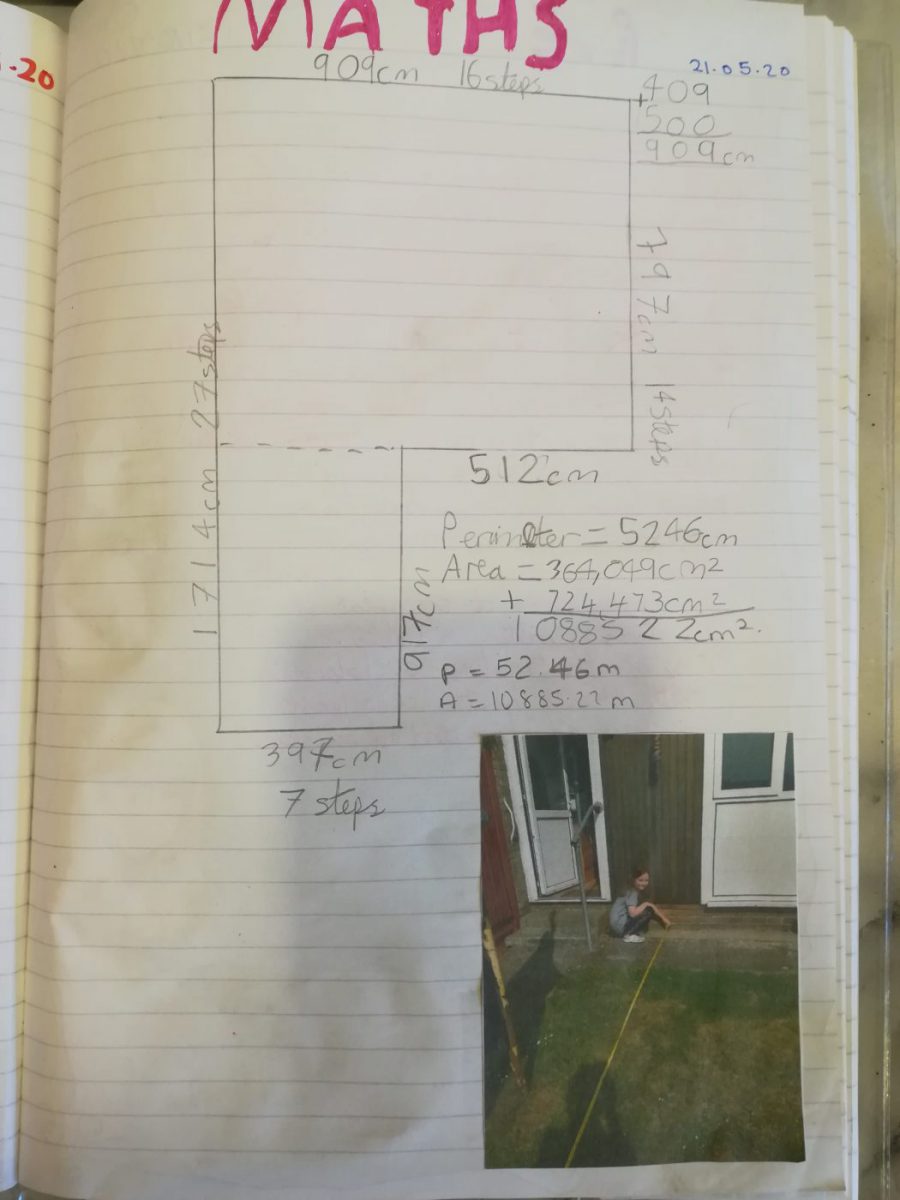 .20
MATHS
21.05.20
909cm 16 steps
+409
500
909cm
797cm 14 steps
1714cm 27 steps
512cm
Perimeter = 5246cm
Area = 364,049cm²
+ 724,473cm²
1088522cm².
917cm
P = 52.46m
A = 10885.22m
397cm
7 steps